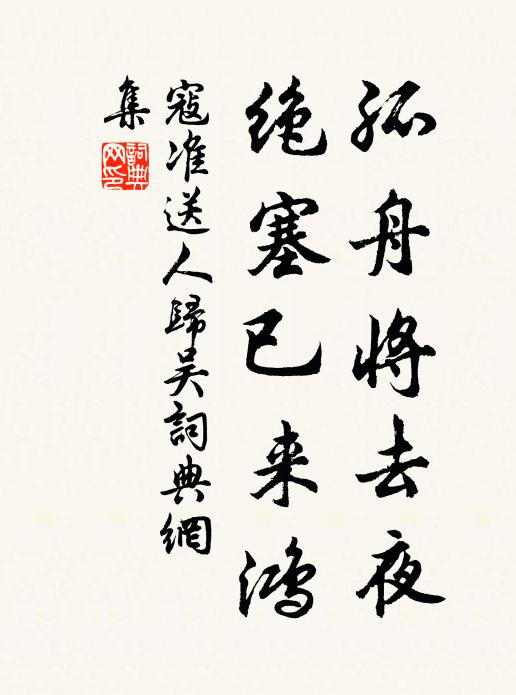 孤舟将去夜
绝塞已来鸿
寇准送人歸吴詞典網
集
詞典
网印